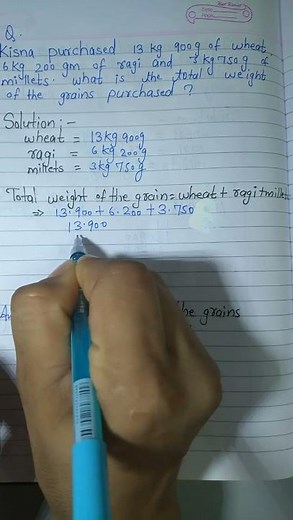 Q.
Kisna purchased 13 kg 900g of wheat,
6kg 200 gm of ragi and 3 kg 750 g of
millets. what is the total weight
of the grains purchased ?
Solution :-
wheat = 13kg 900g
ragi = 6 kg 200g
millets = 3kg 750g
Total weight of the grain = wheat + ragi + millet
⇒ 13.900 + 6.200 + 3.750
13.900
the grains